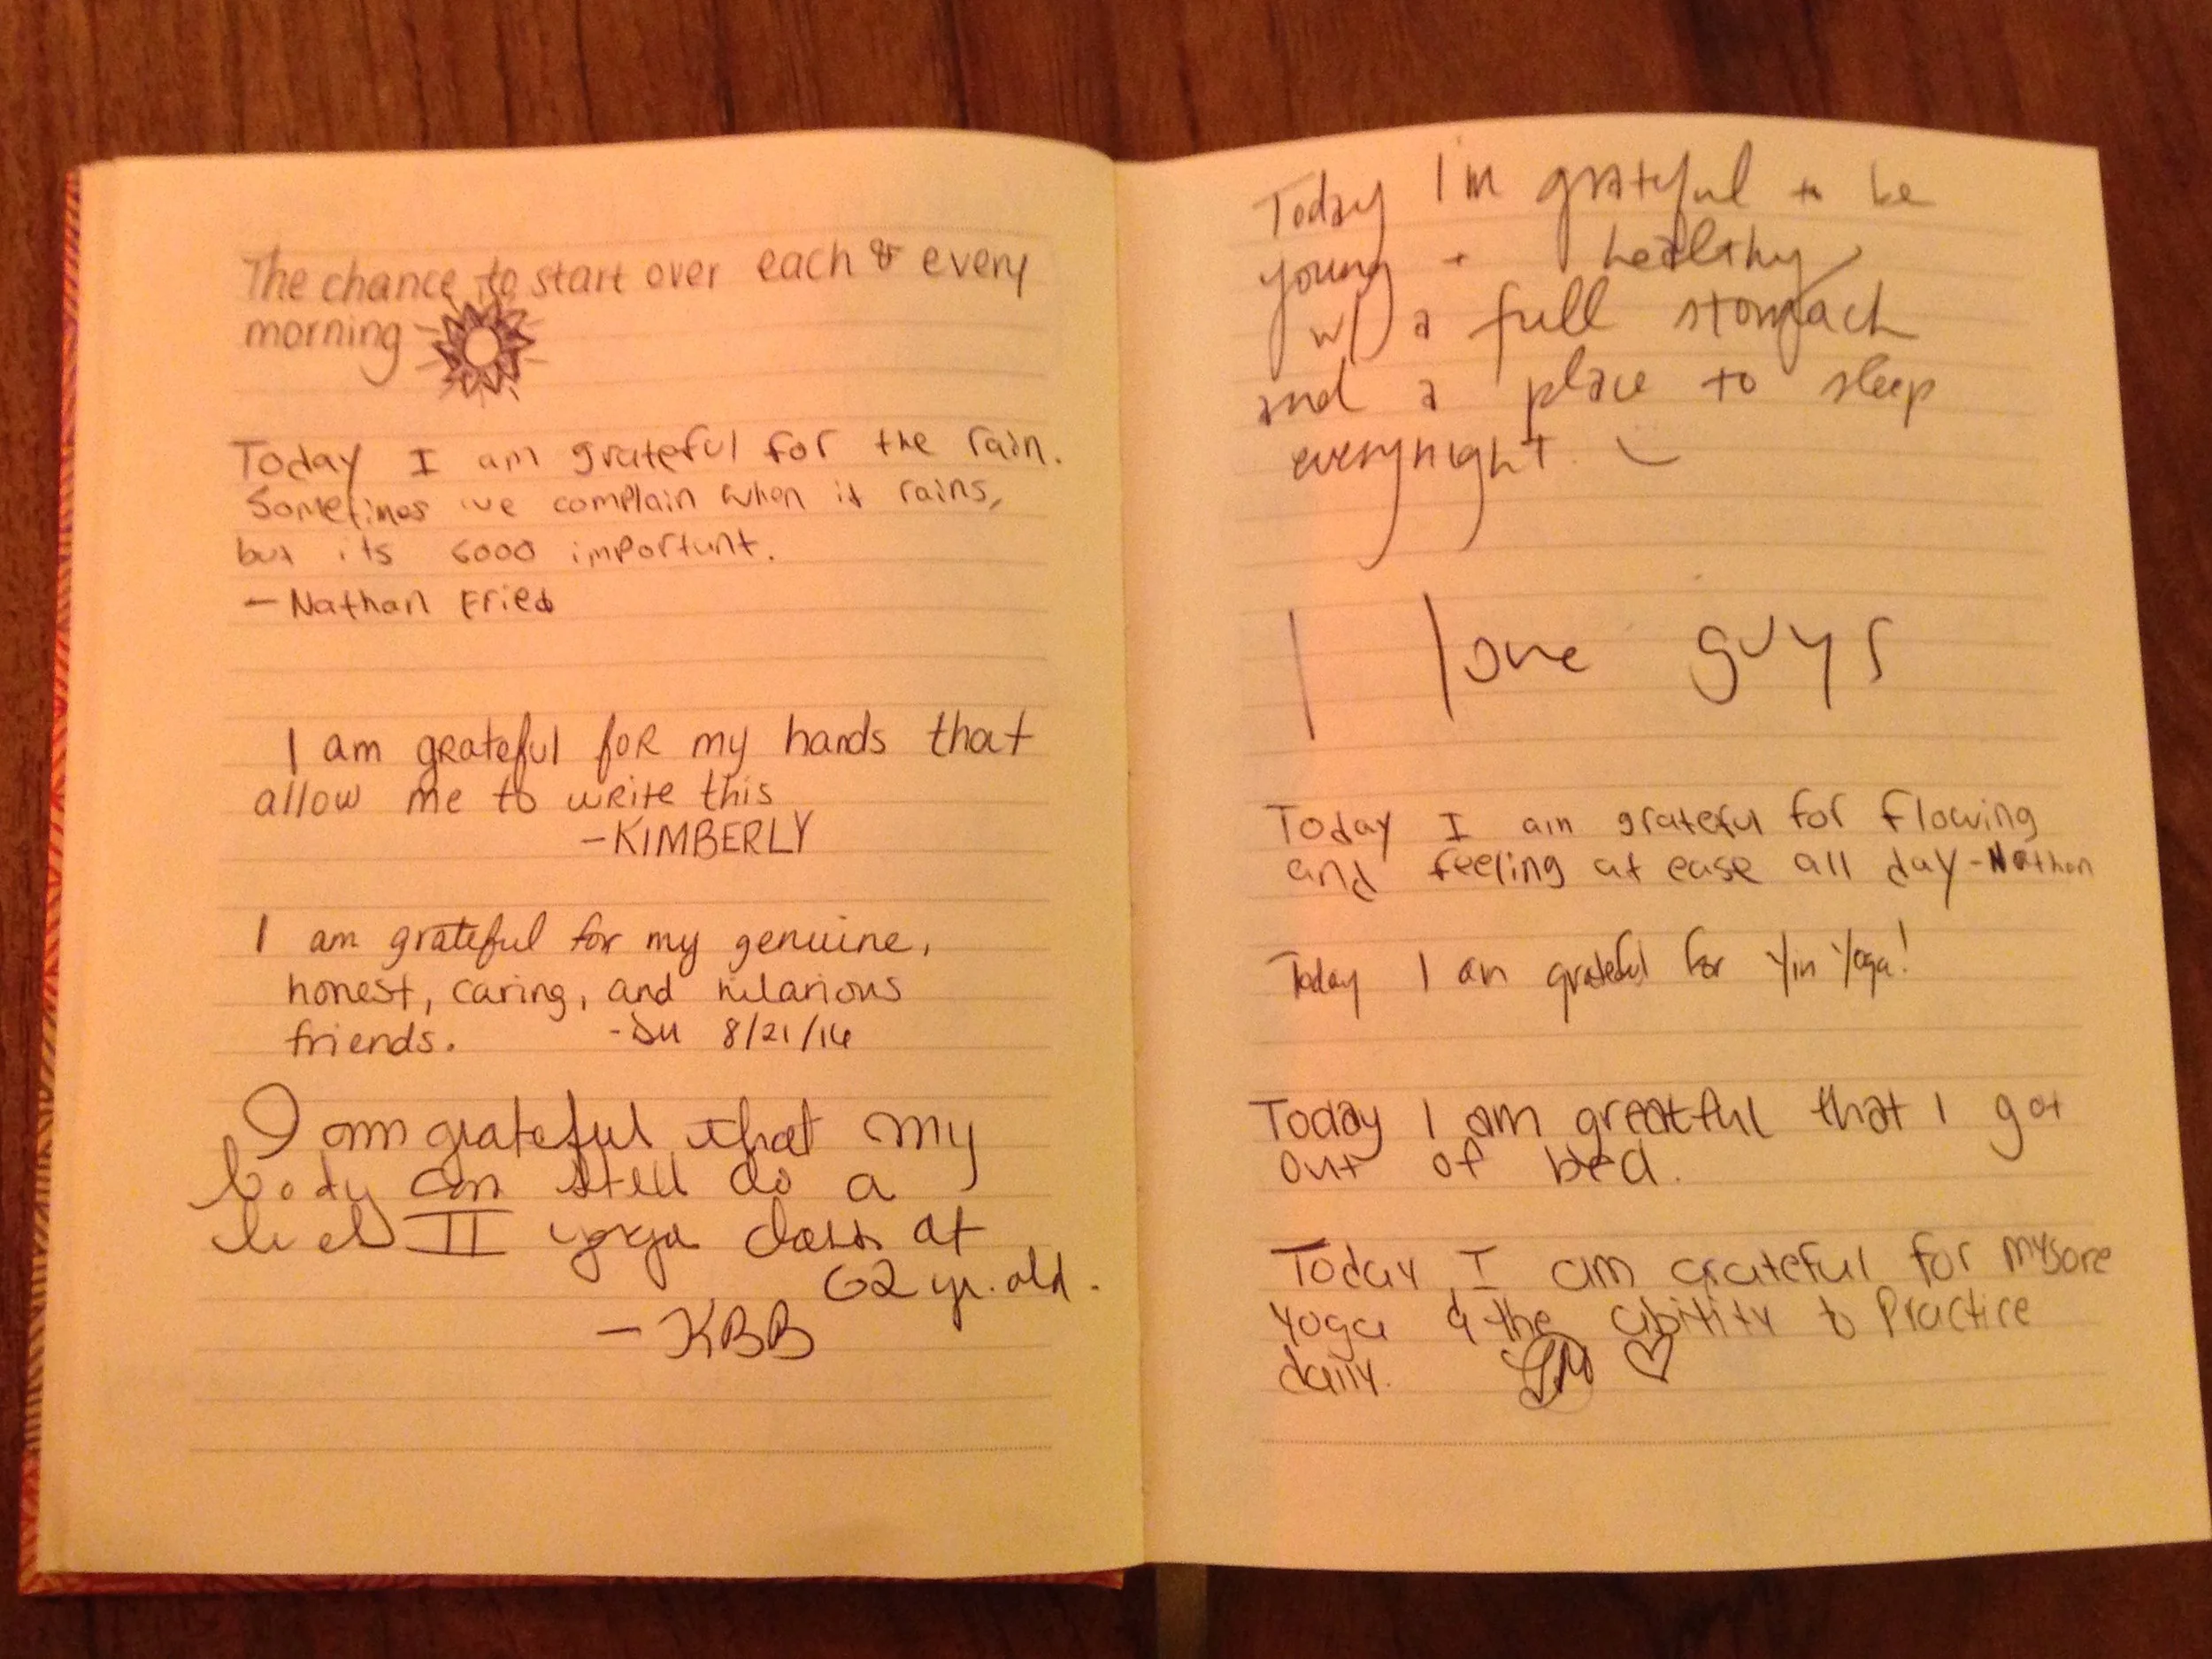 The chance to start over each & every
morning
Today I am grateful for the rain.
Sometimes we complain when it rains,
but its sooo important.
— Nathan Fried
I am grateful for my hands that
allow me to write this
- KIMBERLY
I am grateful for my genuine,
honest, caring, and hilarious
friends. 8/21/14
I am grateful that my
body can still do a
level II yoga class at
62 yr. old.
— KBB
Today I'm grateful to be
young + healthy
w/ a full stomach
and a place to sleep
everynight.
I love guys
Today I am grateful for flowing
and feeling at ease all day - Nathan
Today I am grateful for Yin Yoga!
Today I am greatful that I got
out of bed.
Today I am grateful for mysore
yoga & the ability to Practice
daily.